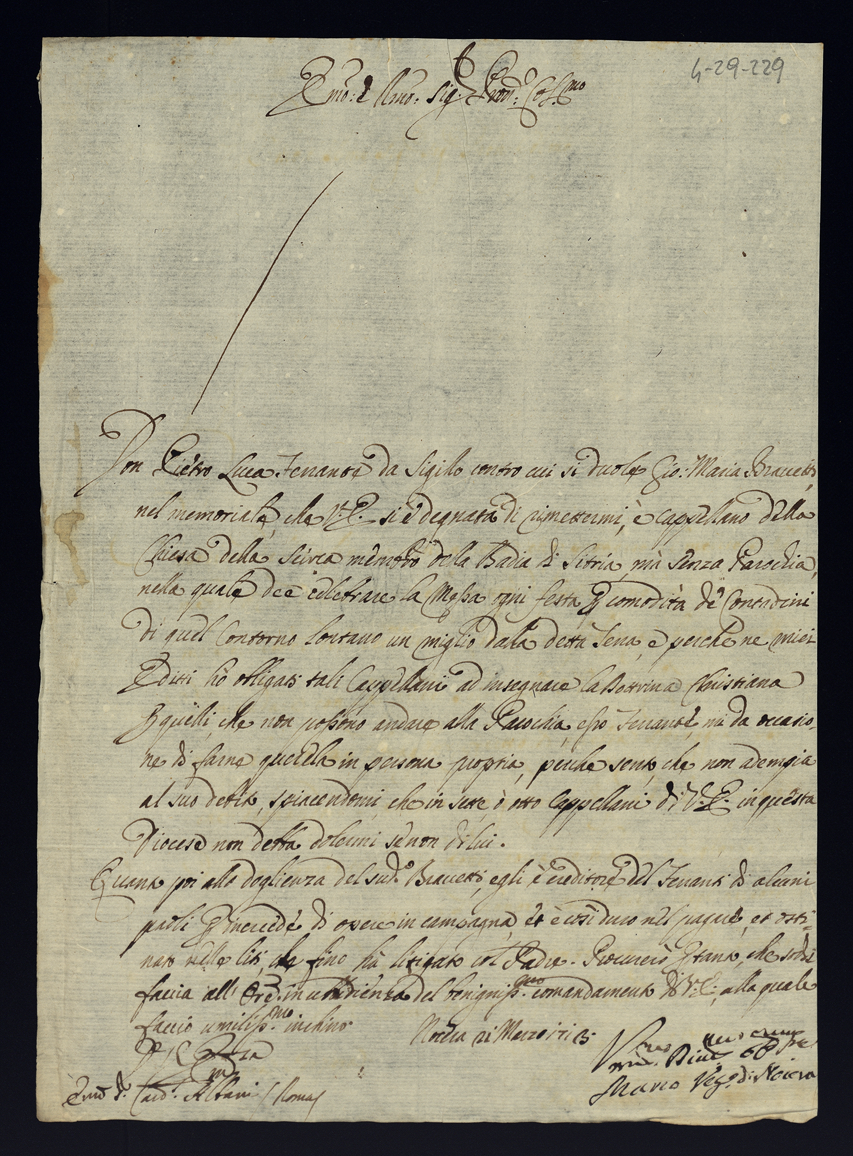 4-29-229
Emo: e Rmo: Sig: Pron: Col:mo
Don Pietro Luca Ferrante da Sigillo contro cui si duole Gio: Maria Bracetti
nel memoriale, che V: E. si è degnata di rimettermi, è Cappellano della
Chiesa della Scirca membro della Badia di Sitria, mà senza Parochia,
nella quale deè celebrare la Messa ogni festa p comodità de' Contadini
di quel Contorno lontano un miglio dalla detta Terra, e perche ne miei
Editti hò obligati tali Cappellani ad insegnare la Dottrina Christiana
à quelli che non possono andare alla Parochia, esso Ferrante, mi dà occasio-
ne di farne querela in persona propria, perche sento, che non adempia
al suo debito, spiacendomi, che in sette, ò otto Cappellani di V. E. in questa
Diocese non debba dolermi se non di lui.
Quanto poi alla doglienza del sud.o Bracetti, egli è creditore del Ferranti di alcuni
paoli p mercede di opere in campagna, et è così duro nel pagare, et osti-
nato nelle liti, che fino hà litigato col Padre. Procurerò p tanto, che sodis
faccia all' Ore: in ubbidienza del benigniss:mo comandamento di V: E:, alla quale
faccio umiliss:mo inchino
Nocera 21 Marzo
Di V. E.
Emo S: Card: Albani / Roma /
Mario Vescº: di Nocera